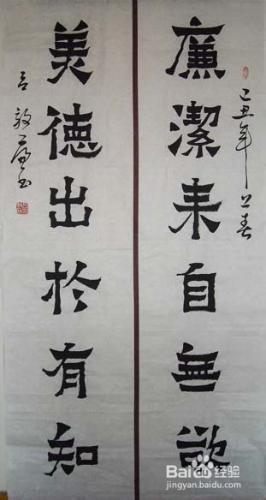 廉潔来自無欲
己丑年上春
美德出於有知
Bai度经验
jingyan.baidu.com